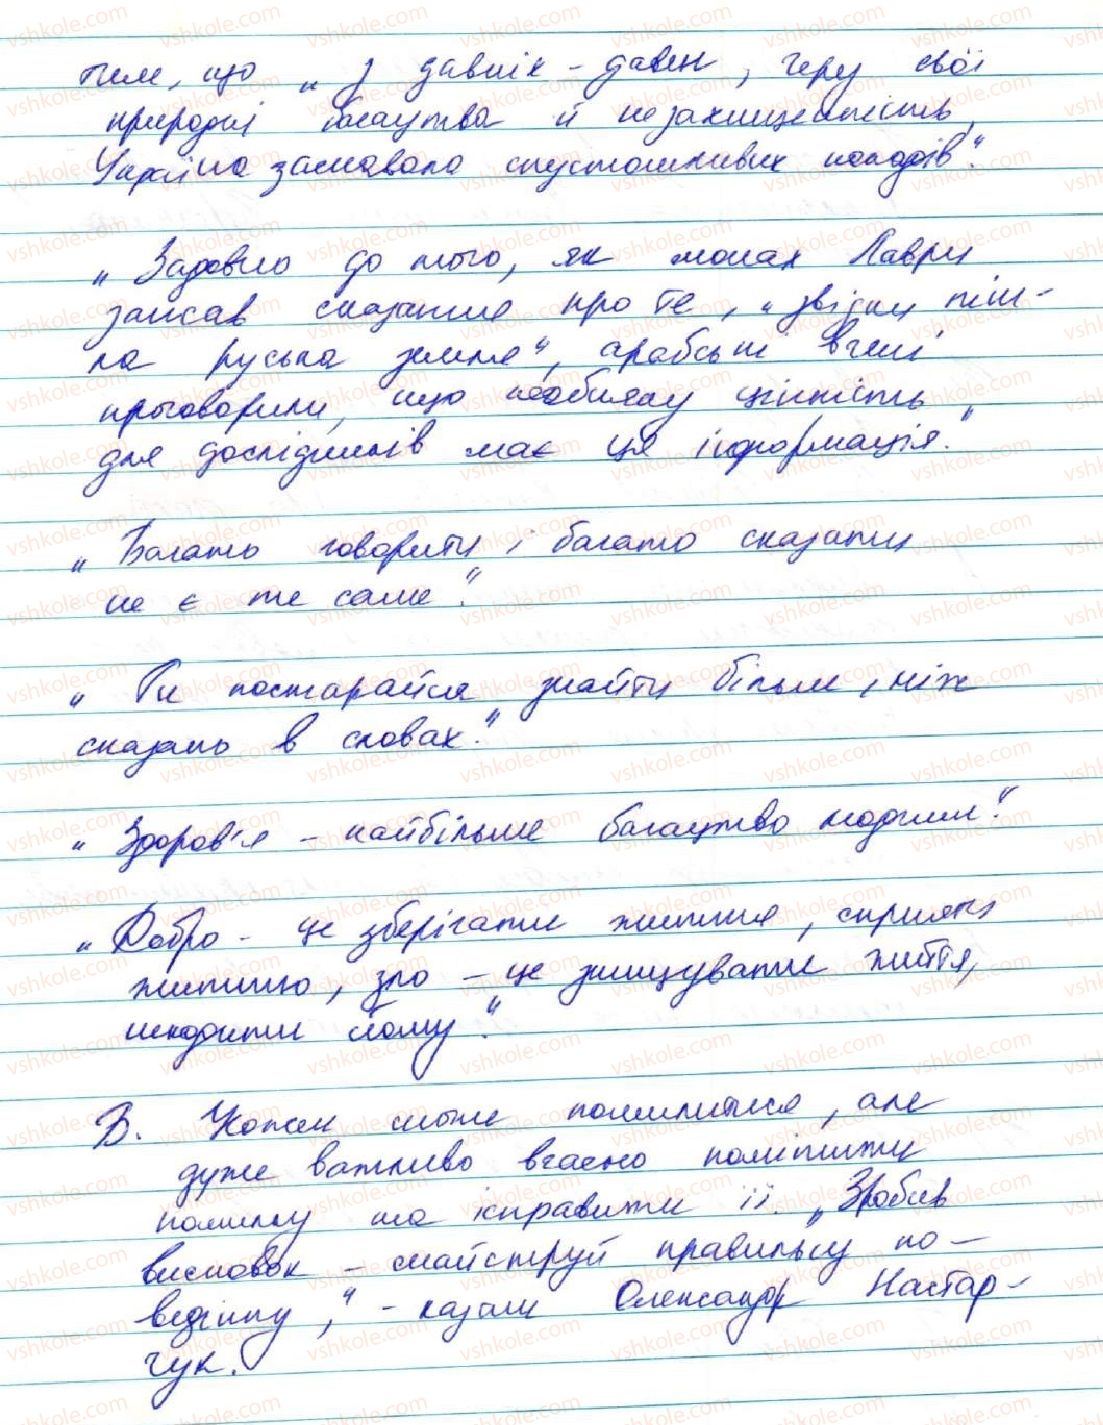 тим, що „З давніх-давен, через свої
природні багатства й незахищеність,
Україна зазнавала спустошливих походів".
„Задовго до того, як монах Лаври
записав сказання про те, „звідки піш-
ла руська земля", арабські вчені
проговорили, що неабияку цінність
для дослідників має ця інформація."
„Багато говорити і багато сказати
не є те саме".
„Ти постарайся знайти більше, ніж
сказано в словах".
„Здоров'я – найбільше багатство людини".
„Добро – це зберігати життя, сприяти
життю, зло – це знищувати життя,
шкодити йому".
В. Кожен може помилитися, але
дуже важливо вчасно помітити
помилку та ісправити її. „Зробив
висновок – майструй правильну по-
ведінку," – казали Олександр Настар-
чук.